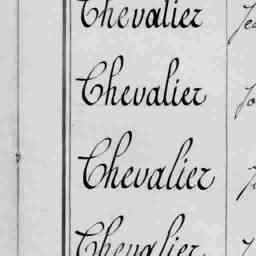 Chevalier
Chevalier
Chevalier
Chevalier